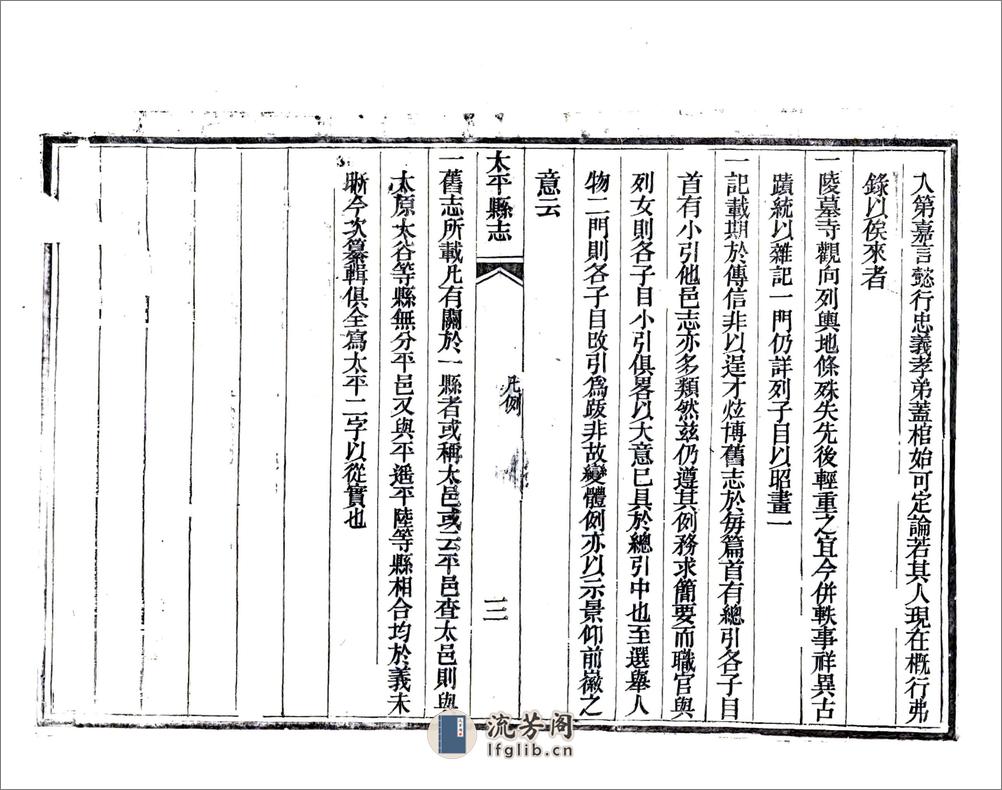 入第嘉言懿行忠義孝弟蓋棺始可定論若其人現在槪行弗
錄以俟來者
一陵墓寺觀向列輿地條殊失先後輕重之宜今併軼事祥異古
蹟統以雜記一門仍詳列子目以昭畫一
一記載期於傳信非以逞才炫博舊志於每篇首有總引各子目
首有小引他邑志亦多類然茲仍遵其例務求簡要而職官與
列女則各子目小引俱畧以大意已具於總引中也至選舉人
物二門則各子目改引爲跋非故變體例亦以示景仰前徽之
意云
太平縣志
凡例
三
一舊志所載凡有關於一縣者或稱太邑或云平邑查太邑則與
太原太谷等縣無分平邑又與平遙平陸等縣相合均於義未
晰今次纂輯俱全寫太平二字以從實也
流芳阁
lfglib.cn